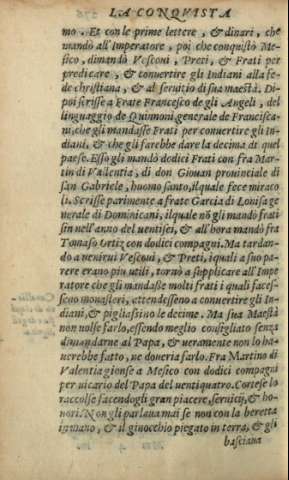 LA CONQVISTA
mo. Et con le prime lettere, & dinari, che
mandò all'Imperatore, poi che conquistò Me-
sico, dimandò Vescoui, Preti, & Frati per
predicare, & conuertire gli Indiani alla fe-
de christiana, & al seruitio di sua maestà. Di-
poi scrisse a Frate Francesco de gli Angeli, del
linguaggio de Quinnoni, generale de Francisca-
ni, che gli mandasse Frati per conuertire gli In-
diani, & che gli farebbe dare la decima di quel
paese. Esso gli mandò dodici Frati con fra Mar-
tin di Vallentia, di don Giouan prouinciale di
san Gabriele, huomo santo, ilquale fece miraco
li. Scrisse parimente a frate Garcia di Loaisa ge
nerale di Dominicani, ilquale nõ gli mandò frati
sin nell'anno del uentisei, & all'hora mandò fra
Tomaso Ortiz con dodici compagni. Ma tardan-
do a uenirui Vescoui, & Preti, i quali a suo pa-
rere erano piu utili, tornò a supplicare all'Impe
ratore che gli mandasse molti frati i quali faces-
scno monasteri, attendesseno a conuertire gli In-
diani, & pigliassino le decime. Ma sua Maestà
non uolse farlo, essendo meglio consigliato senza
dimandarne al Papa, & ueramente non lo ha-
uerebbe fatto, ne doueria farlo. Fra Martino di
Valentia gionse a Mesico con dodici compagni
per uicario del Papa del uentiquatro. Cortese lo
raccolse facendogli gran piacere, seruitij, & ho-
nori. Non gli parlaua mai se non con la beretta
in mano, & il ginocchio piegato in terra, & gli
basciaua